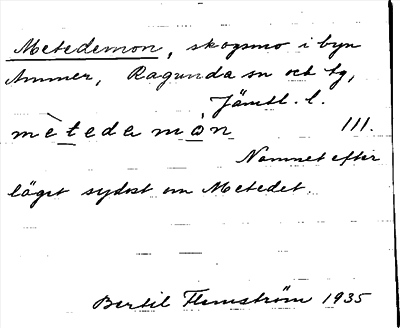 Metedemon, skogsmo i byn
Ammer, Ragunda sn och tg,
Jämtl. l.
mèteda mòn 111.
Namnet efter
läget sydost om Metedet.
Bertil Flemström 1935